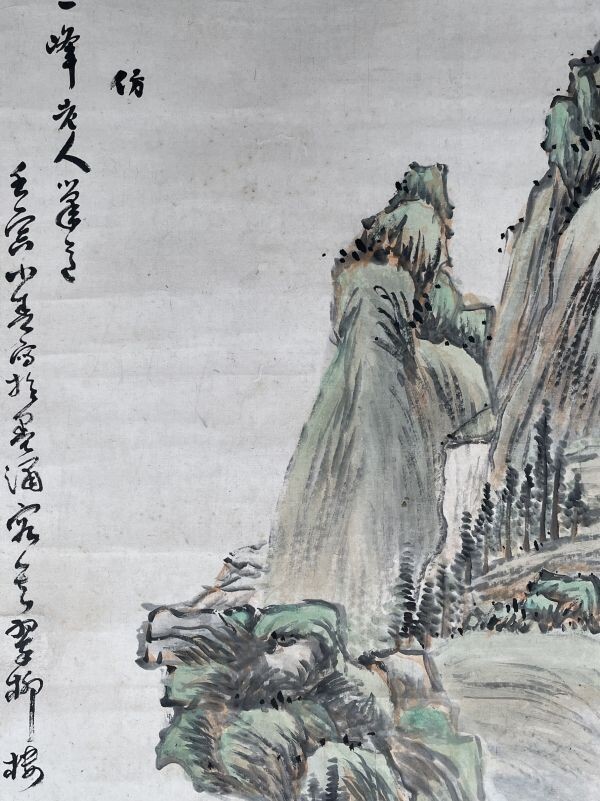 仿
一峰老人筆意
壬寅小春寫於墨涌客舍翠柳樓